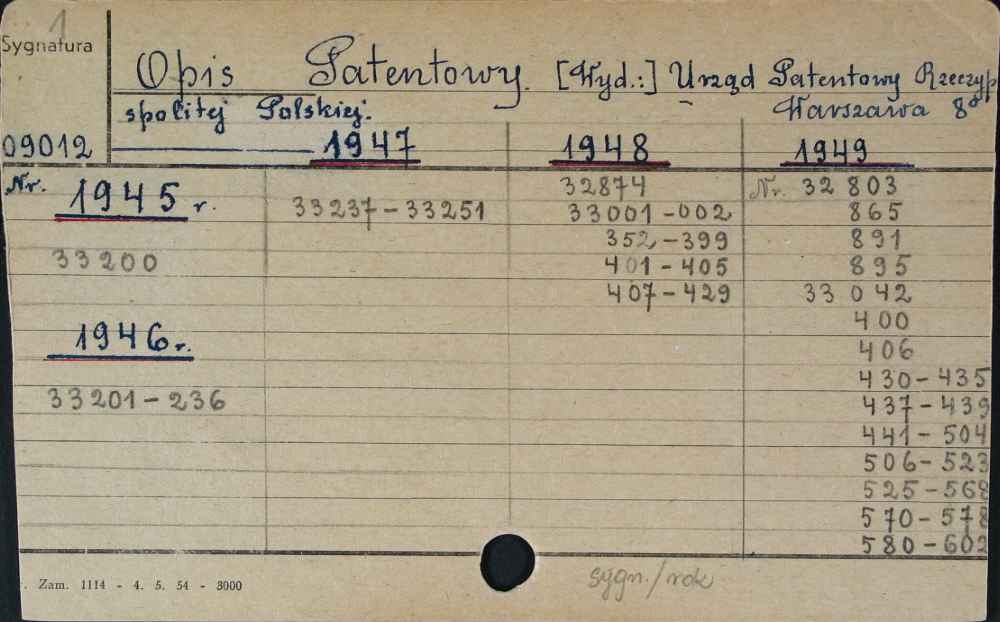 1
Sygnatura
Opis Patentowy. [Wyd.:] Urząd Patentowy Rzeczyp
spolitej Polskiej. Warszawa 8°
09012
1947
1948
1949
Nr. 1945 r.
33200
1946 r.
33201-236
33237-33251
32874
33001-002
352-399
401-405
407-429
Nr. 32 803
865
891
895
33 042
400
406
430-435
437-439
441-504
506-523
525-568
570-578
580-602
. Zam. 1114 - 4. 5. 54 - 3000
sygn./rok